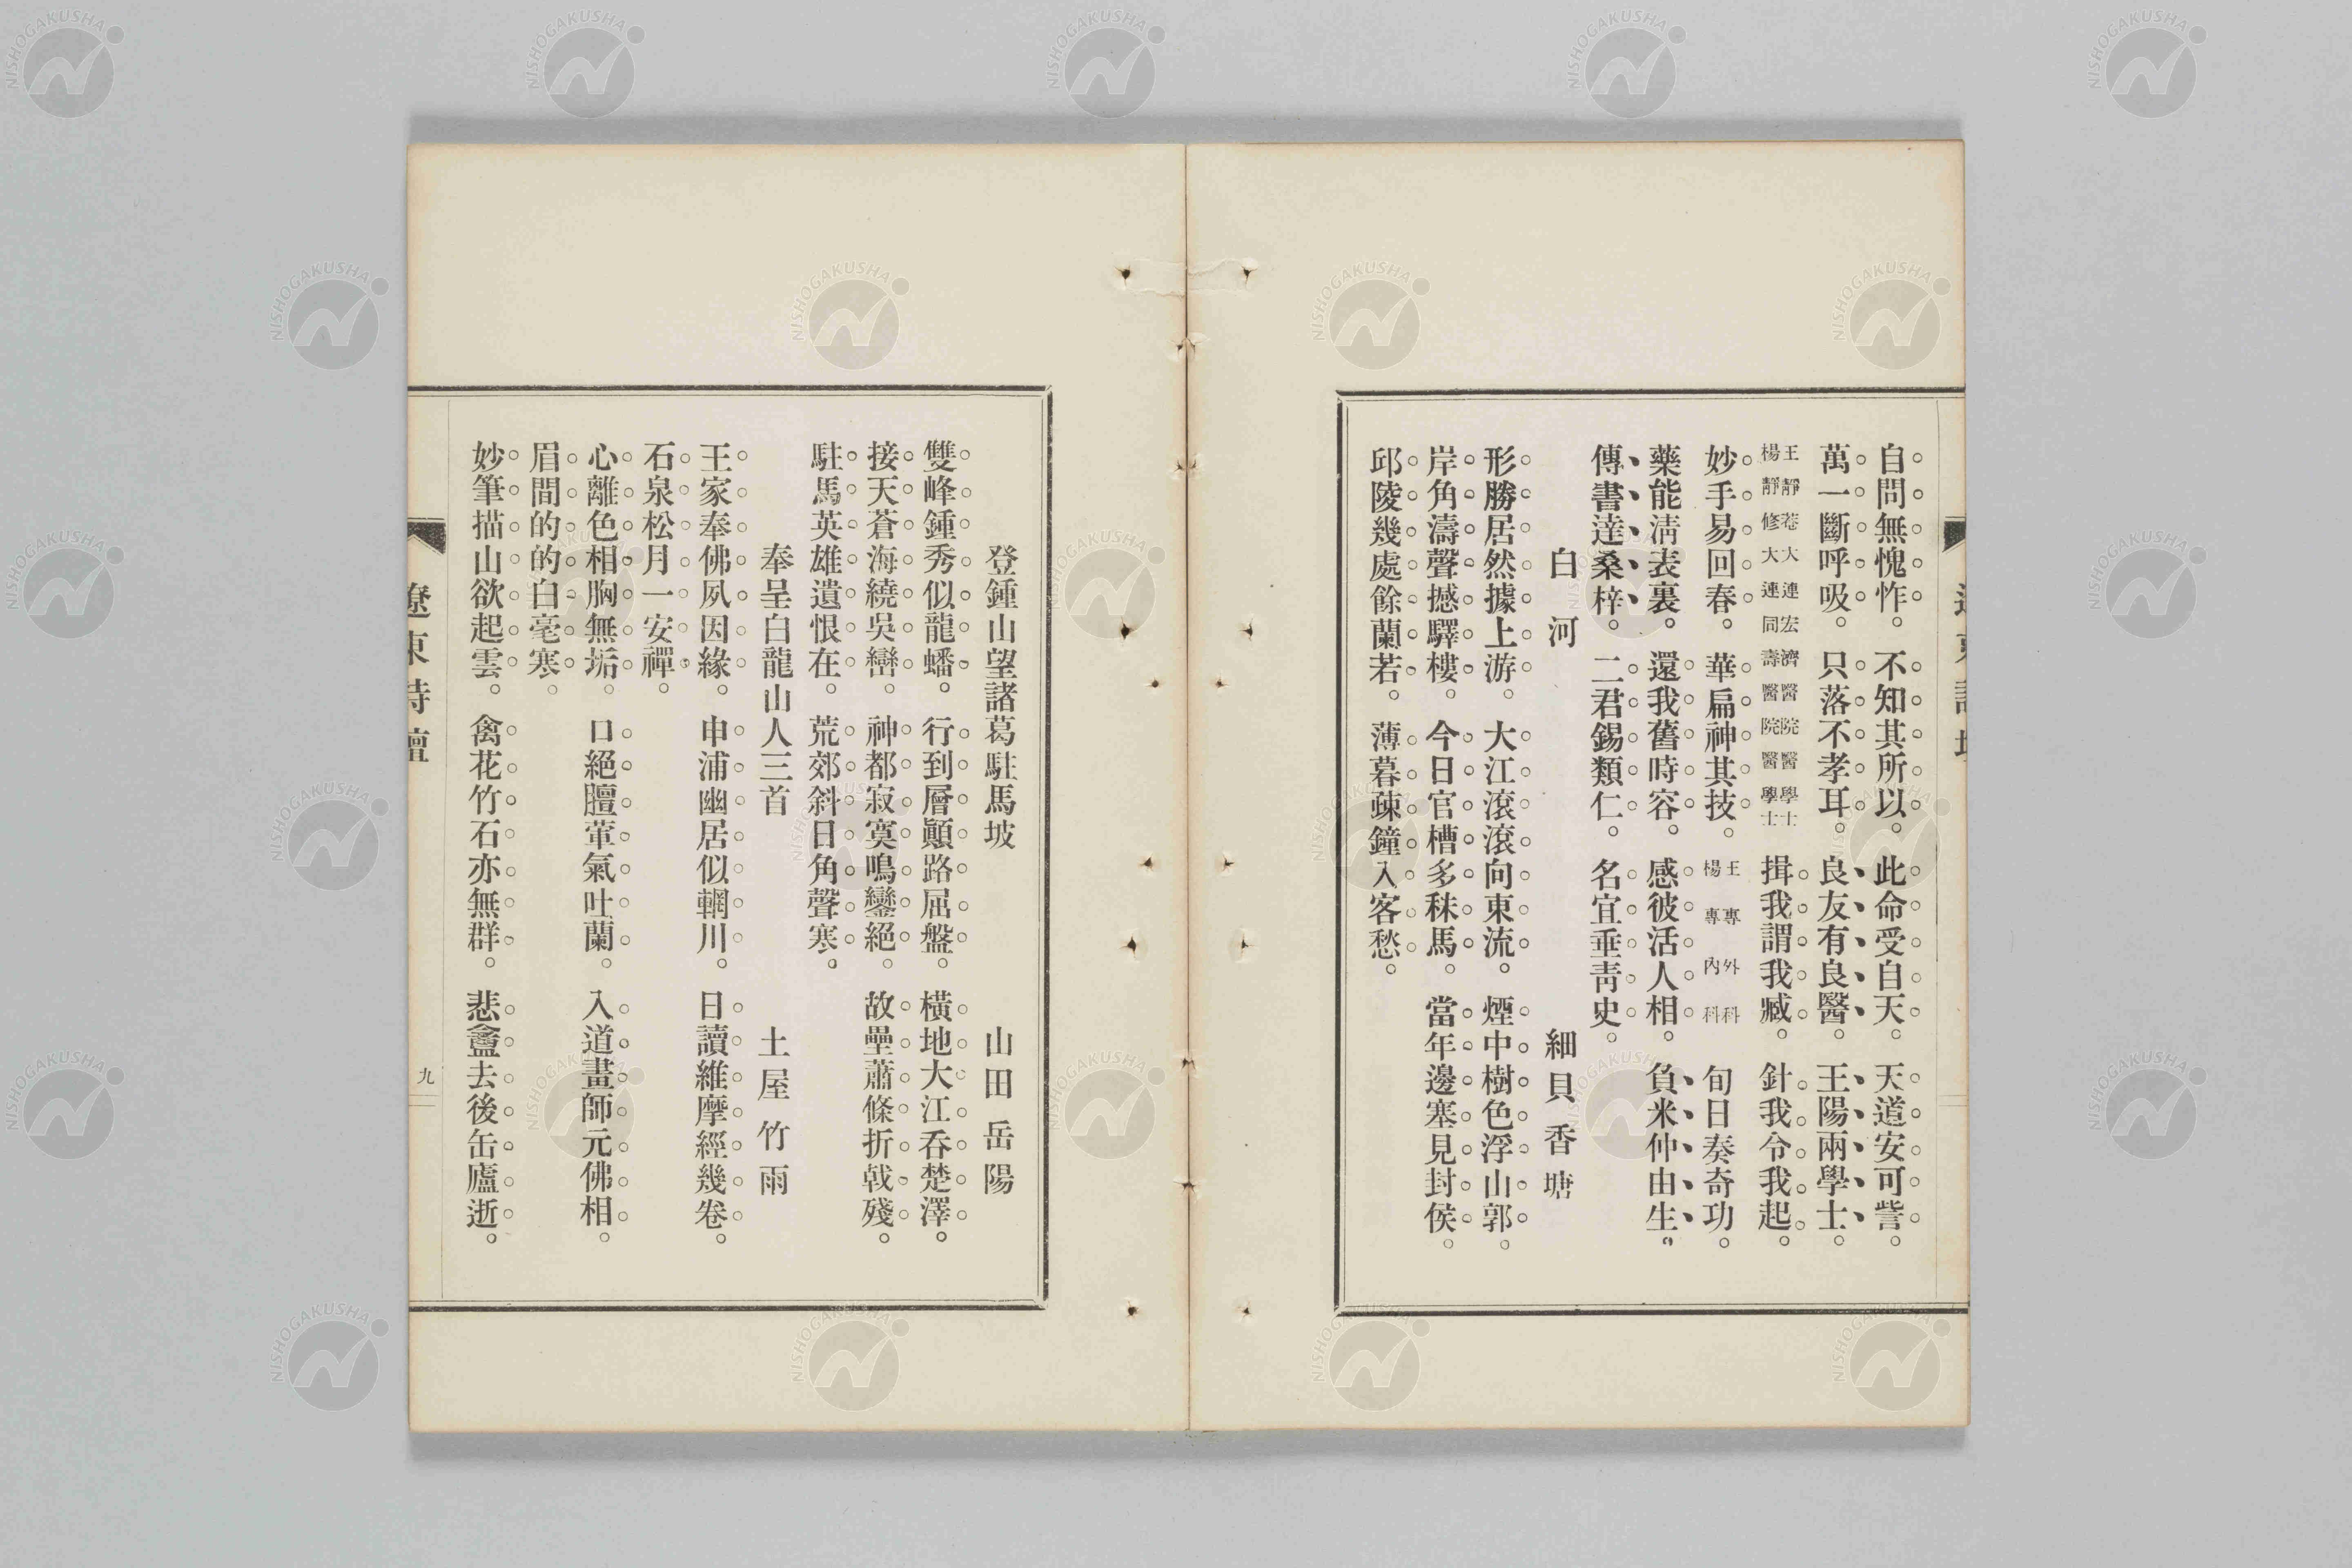 自問無愧怍。不知其所以。此命受自天。天道安可訾。
萬一斷呼吸。只落不孝耳。良友有良醫。王陽兩學士。
王靜菴大連宏濟醫院醫學士
楊靜修大連同壽醫院醫學士
揖我謂我臧。針我令我起。
妙手易回春。華扁神其技。
王專外科
楊專內科
旬日奏奇功。
藥能淸表裏。還我舊時容。感彼活人相。負米仲由生。
傳書達桑梓。二君錫類仁。名宜垂靑史。
白河 細貝香塘
形勝居然據上游。大江滾滾向東流。煙中樹色浮山郭。
岸角濤聲撼驛樓。今日官槽多秣馬。當年邊塞見封侯。
邱陵幾處餘蘭若。薄暮疎鐘入客愁。
登鍾山望諸葛駐馬坡 山田岳陽
雙峰鍾秀似龍蟠。行到層顚路屈盤。橫地大江呑楚澤。
接天蒼海繞吳巒。神都寂寞鳴鑾絕。故壘蕭條折戟殘。
駐馬英雄遺恨在。荒郊斜日角聲寒。
奉呈白龍山人三首 土屋竹雨
王家奉佛夙因緣。申浦幽居似輞川。日讀維摩經幾卷。
石泉松月一安禪。
心離色相胸無垢。口絕膻葷氣吐蘭。入道畫師元佛相。
眉間的的白毫寒。
妙筆描山欲起雲。禽花竹石亦無群。悲盦去後缶廬逝。
遼東詩壇
九
NISHOGAKUSHA